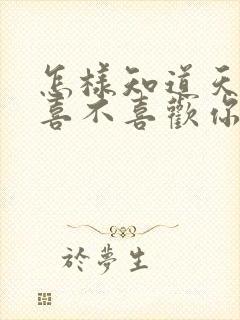 怎樣知道天
喜不喜歡你
於夢生